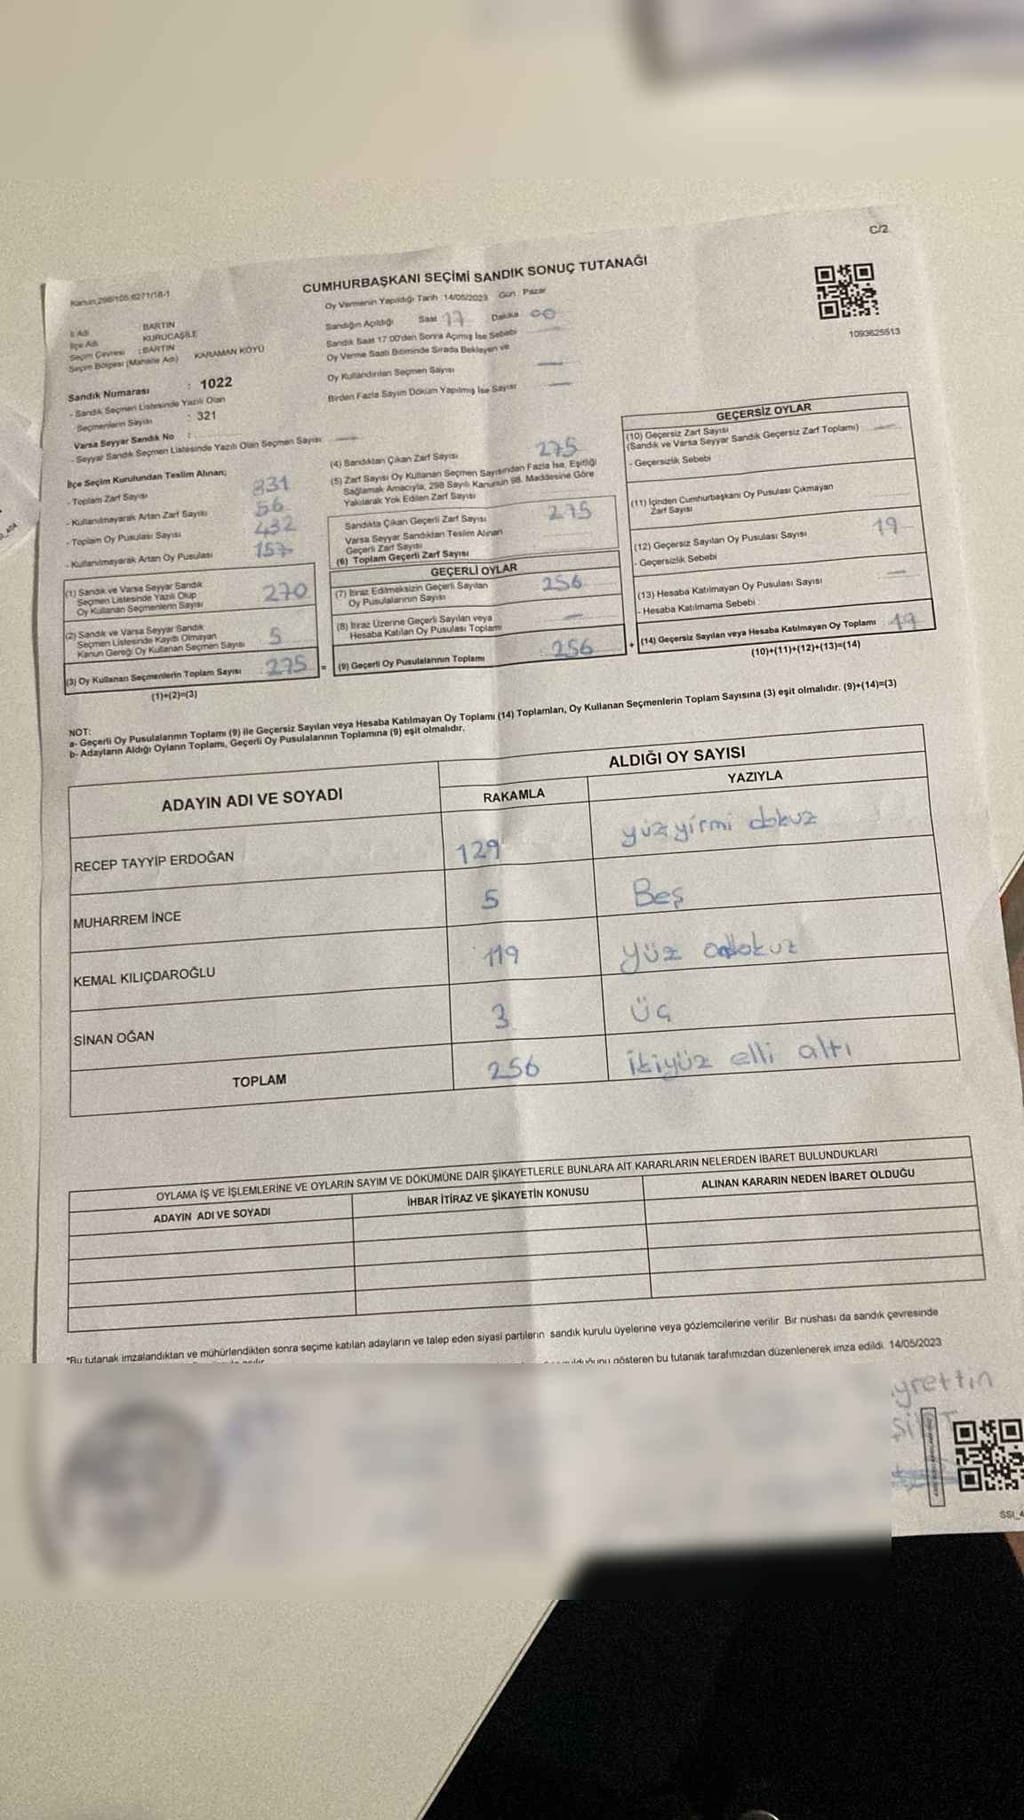 C/2
CUMHURBAŞKANI SEÇİMİ SANDIK SONUÇ TUTANAĞI
Kanun,298/105,6271/18-1
Oy Vermenin Yapıldığı Tarih 14/05/2023 Gün : Pazar
1093625513
İl Adı : BARTIN
İlçe Adı : KURUCAŞİLE
Seçim Çevresi : BARTIN
Seçim Bölgesi (Mahalle Adı) KARAMAN KÖYÜ
Sandığın Açıldığı Saat 17 Dakika 00
Sandık Saat 17:00'den Sonra Açımış İse Sebebi —
Oy Verme Saati Bitiminde Sırada Bekleyen ve
Oy Kullandırılan Seçmen Sayısı —
Birden Fazla Sayım Döküm Yapılmış İse Sayısı —
Sandık Numarası : 1022
- Sandık Seçmen Listesinde Yazılı Olan
Seçmenlerin Sayısı : 321
Varsa Seyyar Sandık No :
- Seyyar Sandık Seçmen Listesinde Yazılı Olan Seçmen Sayısı —
İlçe Seçim Kurulundan Teslim Alınan;
- Toplam Zarf Sayısı 331
- Kullanılmayarak Artan Zarf Sayısı 56
- Toplam Oy Pusulası Sayısı 432
- Kullanılmayarak Artan Oy Pusulası 157
(1) Sandık ve Varsa Seyyar Sandık
Seçmen Listesinde Yazılı Olup
Oy Kullanan Seçmenlerin Sayısı 270
(2) Sandık ve Varsa Seyyar Sandık
Seçmen Listesinde Kayıtlı Olmayan
Kanun Gereği Oy Kullanan Seçmen Sayısı 5
(3) Oy Kullanan Seçmenlerin Toplam Sayısı 275 =
(1)+(2)=(3)
(4) Sandıktan Çıkan Zarf Sayısı 275
(5) Zarf Sayısı Oy Kullanan Seçmen Sayısından Fazla İse, Eşitliği
Sağlamak Amacıyla, 298 Sayılı Kanunun 98. Maddesine Göre
Yakılarak Yok Edilen Zarf Sayısı
Sandıkta Çıkan Geçerli Zarf Sayısı 275
Varsa Seyyar Sandıktan Teslim Alınan
Geçerli Zarf Sayısı
(6) Toplam Geçerli Zarf Sayısı
GEÇERLİ OYLAR
(7) İtiraz Edilmeksizin Geçerli Sayılan
Oy Pusulalarının Sayısı 256
(8) İtiraz Üzerine Geçerli Sayılan veya
Hesaba Katılan Oy Pusulası Toplamı —
(9) Geçerli Oy Pusulalarının Toplamı 256 +
GEÇERSİZ OYLAR
(10) Geçersiz Zarf Sayısı
(Sandık ve Varsa Seyyar Sandık Geçersiz Zarf Toplamı) —
- Geçersizlik Sebebi
(11) İçinden Cumhurbaşkanı Oy Pusulası Çıkmayan
Zarf Sayısı
(12) Geçersiz Sayılan Oy Pusulası Sayısı 19
- Geçersizlik Sebebi
(13) Hesaba Katılmayan Oy Pusulası Sayısı —
- Hesaba Katılmama Sebebi :
(14) Geçersiz Sayılan veya Hesaba Katılmayan Oy Toplamı 19
(10)+(11)+(12)+(13)=(14)
NOT:
a- Geçerli Oy Pusulalarının Toplamı (9) ile Geçersiz Sayılan veya Hesaba Katılmayan Oy Toplamı (14) Toplamları, Oy Kullanan Seçmenlerin Toplam Sayısına (3) eşit olmalıdır. (9)+(14)=(3)
b- Adayların Aldığı Oyların Toplamı, Geçerli Oy Pusulalarının Toplamına (9) eşit olmalıdır.
ADAYIN ADI VE SOYADI
ALDIĞI OY SAYISI
RAKAMLA YAZIYLA
RECEP TAYYİP ERDOĞAN 129 yüzyirmi dokuz
MUHARREM İNCE 5 Beş
KEMAL KILIÇDAROĞLU 119 yüz ondokuz
SİNAN OĞAN 3 Üç
TOPLAM 256 ikiyüz elli altı
OYLAMA İŞ VE İŞLEMLERİNE VE OYLARIN SAYIM VE DÖKÜMÜNE DAİR ŞİKAYETLERLE BUNLARA AİT KARARLARIN NELERDEN İBARET BULUNDUKLARI
ADAYIN ADI VE SOYADI İHBAR İTİRAZ VE ŞİKAYETİN KONUSU ALINAN KARARIN NEDEN İBARET OLDUĞU
*Bu tutanak imzalandıktan ve mühürlendikten sonra seçime katılan adayların ve talep eden siyasi partilerin sandık kurulu üyelerine veya gözlemcilerine verilir. Bir nüshası da sandık çevresinde
gösteren bu tutanak tarafımızdan düzenlenerek imza edildi. 14/05/2023
yrettin